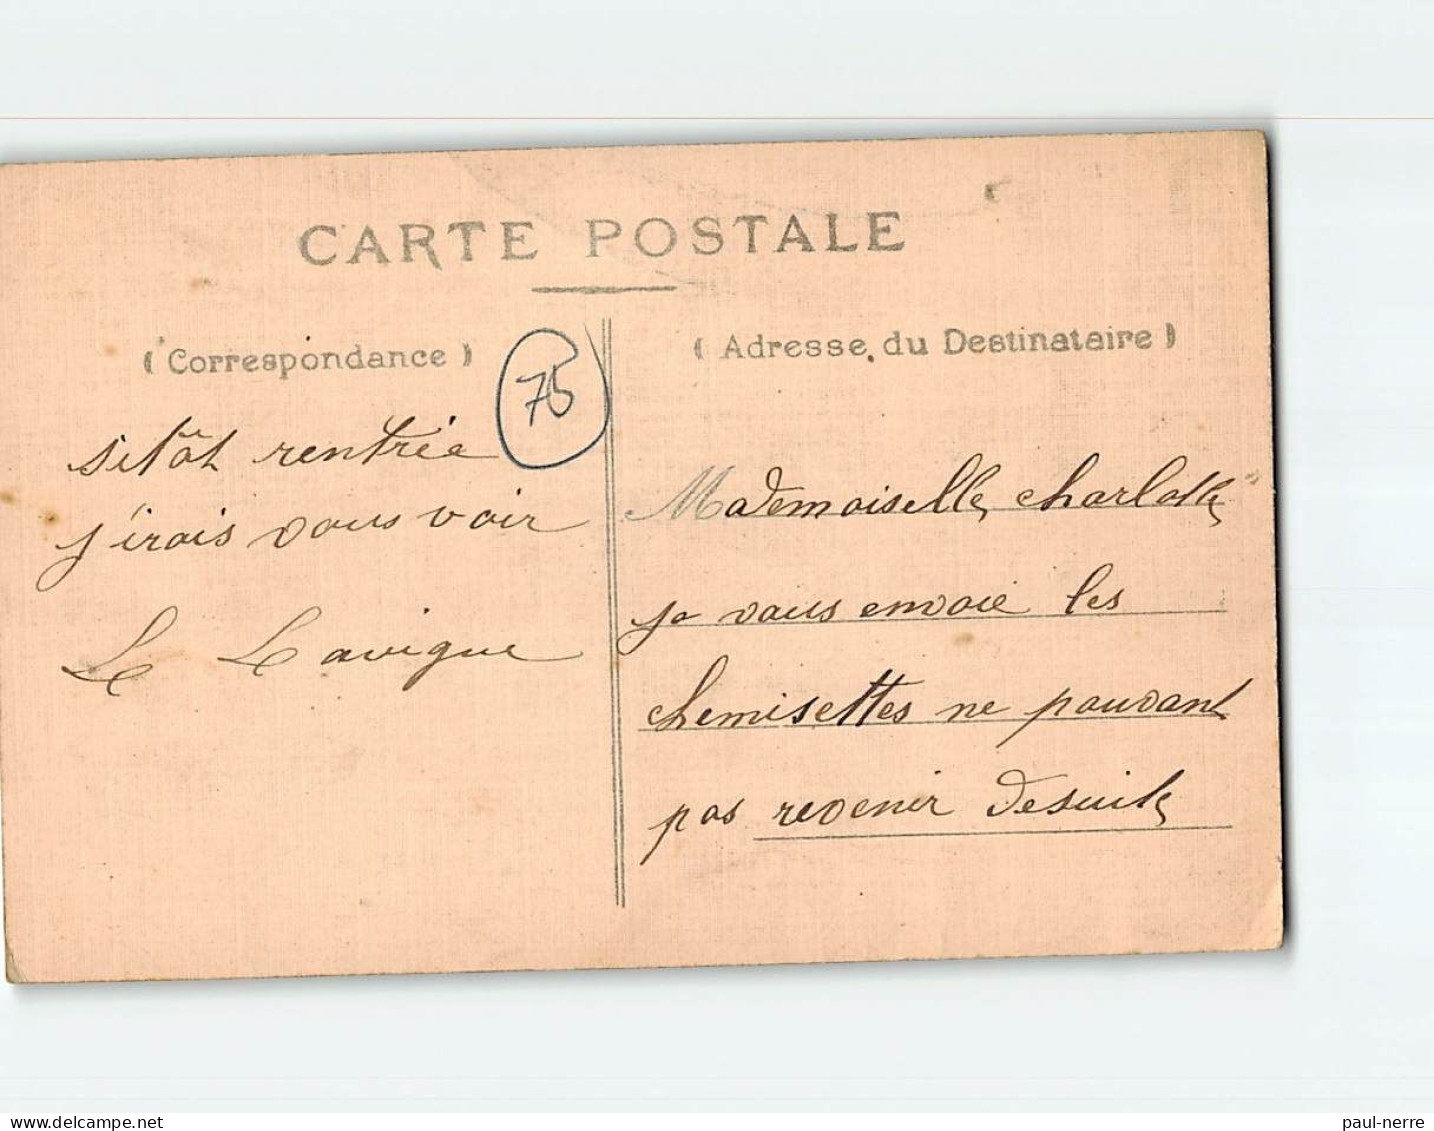 CARTE POSTALE
( Correspondance )
( Adresse du Destinataire )
75
Mademoiselle charlotte
je vous envoie les
chemisettes ne pouvant
pas revenir desuite
sitôt rentrée
j'irais vous voir
L Lavigne
paul-nerre